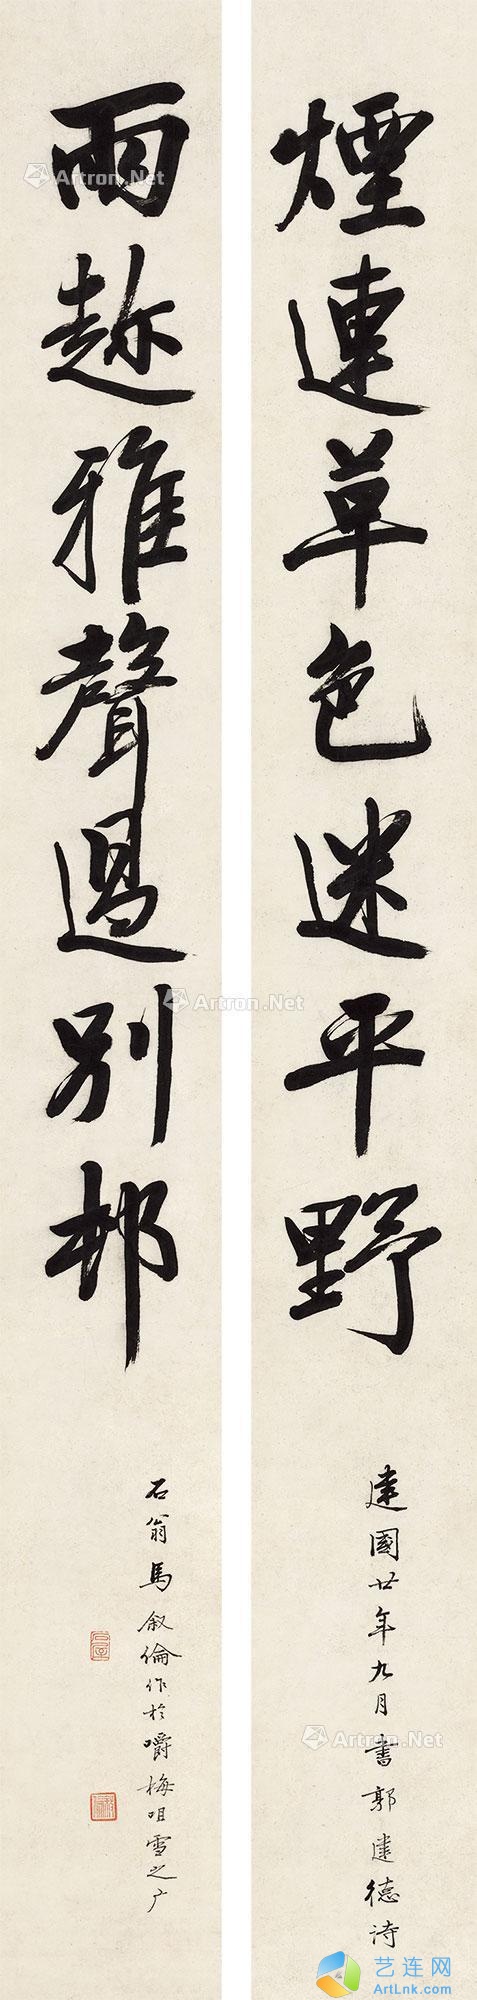 煙連草色迷平野
建國廿年九月書郭建德詩
雨趂雅聲過別邨
石翁馬叙倫作於嚼梅咀雪之广
Artron.Net
Artron.Net
Artron.Net
Artron.Net
艺连网
ArtLnk.com